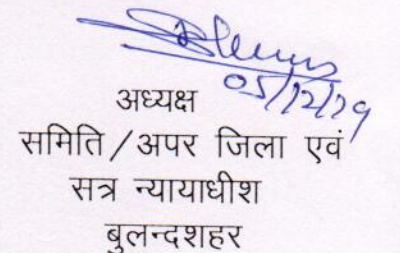 05/12/19
अध्यक्ष
समिति/अपर जिला एवं
सत्र न्यायाधीश
बुलन्दशहर